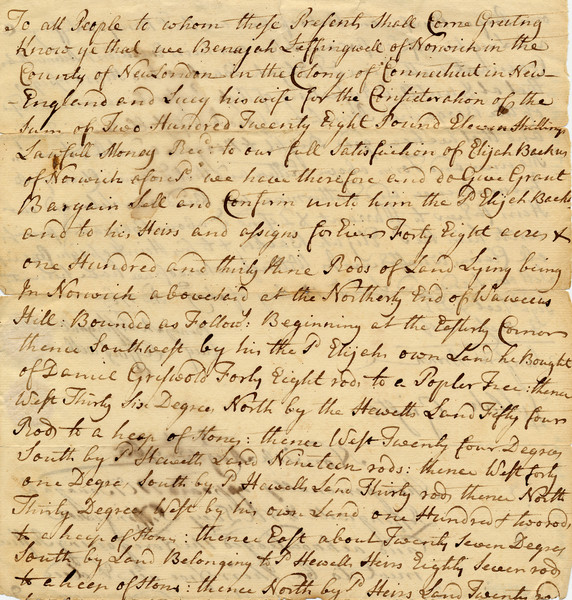 To all People to whom these Presents Shall Come Greeting
Know ye that we Benajah Leffingwell of Norwich in the
County of New London in the Colony of Connecticut in New-
-England and Lucy his wife for the Consideration of the
Sum of Two Hundred Twenty Eight Pound Eleven Shillings
Lawfull Money Recd. to our full Satisfaction of Elijah Backus
of Norwich aforesd. we have therefore and do Give Grant
Bargain Sell and Confirm unto him the sd Elijah Backus
and to his Heirs and assigns for Ever Forty Eight acres &
one Hundred and thirty Nine Rods of Land Lying being
In Norwich abovesaid at the Northerly End of Waweeus
Hill: Bounded as Follows: Beginning at the Easterly Corner
thence Southwest by his the sd Elijahs own Land he Bought
of Daniel Griswold Forty Eight rods to a Popler Tree: thence
West Thirty Six Degrees North by the Hewetts Land Fifty four
Rods to a heap of Stones: thence West Twenty four Degrees
South by sd Hewetts Land Nineteen rods: thence West forty
one Degree South by sd Hewetts Land Thirty rods thence North
Thirty Degrees West by his own Land one Hundred & two rods
to a heap of Stons: thence East about Twenty Seven Degrees
South by Land Belonging to sd Hewetts Heirs Eighty Seven rods
to a heep of Stons: thence North by sd Heirs Land Twenty rods